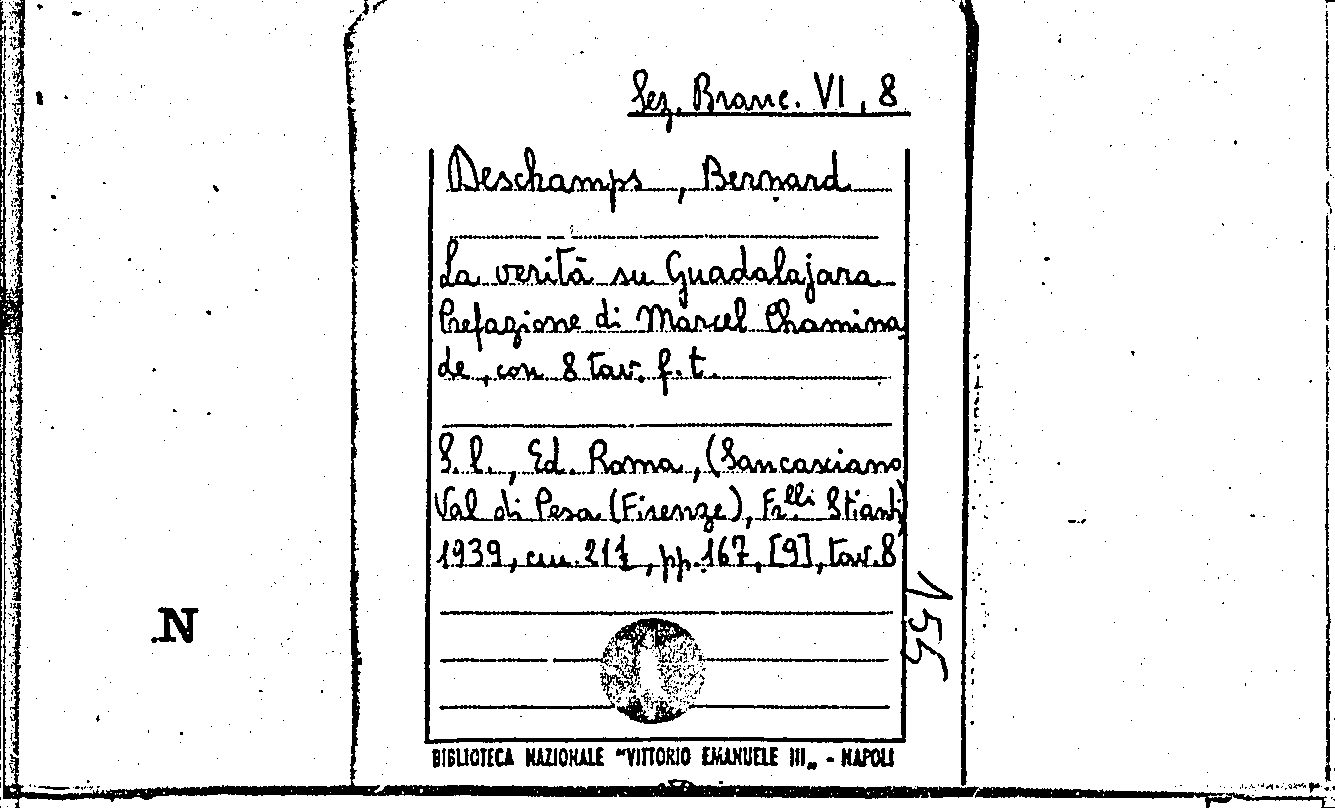 Sez. Branc. VI, 8
Deschamps, Bernard
La verità su Guadalajara
Prefazione di Marcel Chamina
de, con 8 tav. f. t.
S. l., Ed. Roma, (Sancasciano
Val di Pesa (Firenze), Fr.lli Stianti)
1939, cm. 21½, pp. 167, [9], tav. 8
155
N
BIBLIOTECA NAZIONALE "VITTORIO EMANUELE III„ - NAPOLI